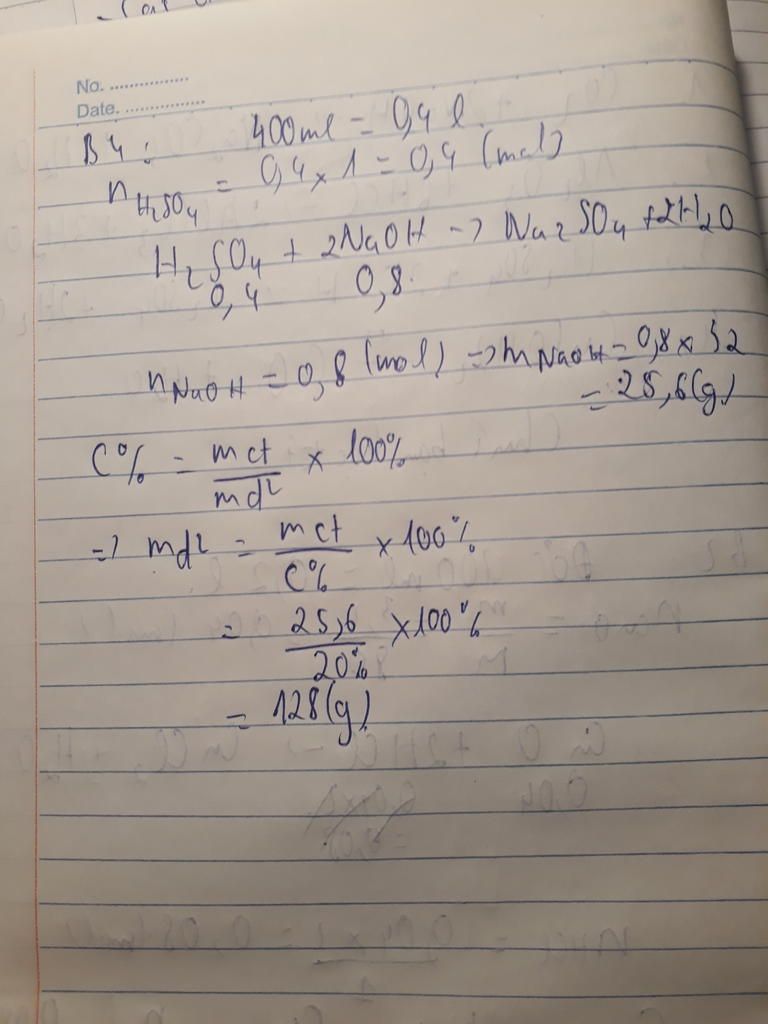 No. ................
Date. ................
B4: 400ml = 0,4 l
nH₂SO₄ = 0,4 x 1 = 0,4 (mol)
H₂SO₄ + 2NaOH -> Na₂SO₄ + 2H₂O
0,4 0,8
nNaOH = 0,8 (mol) => mNaOH = 0,8 x 32
= 25,6(g)
C% = mct / md² x 100%
=> md² = mct / C% x 100%
= 25,6 / 20% x 100%
= 128(g)